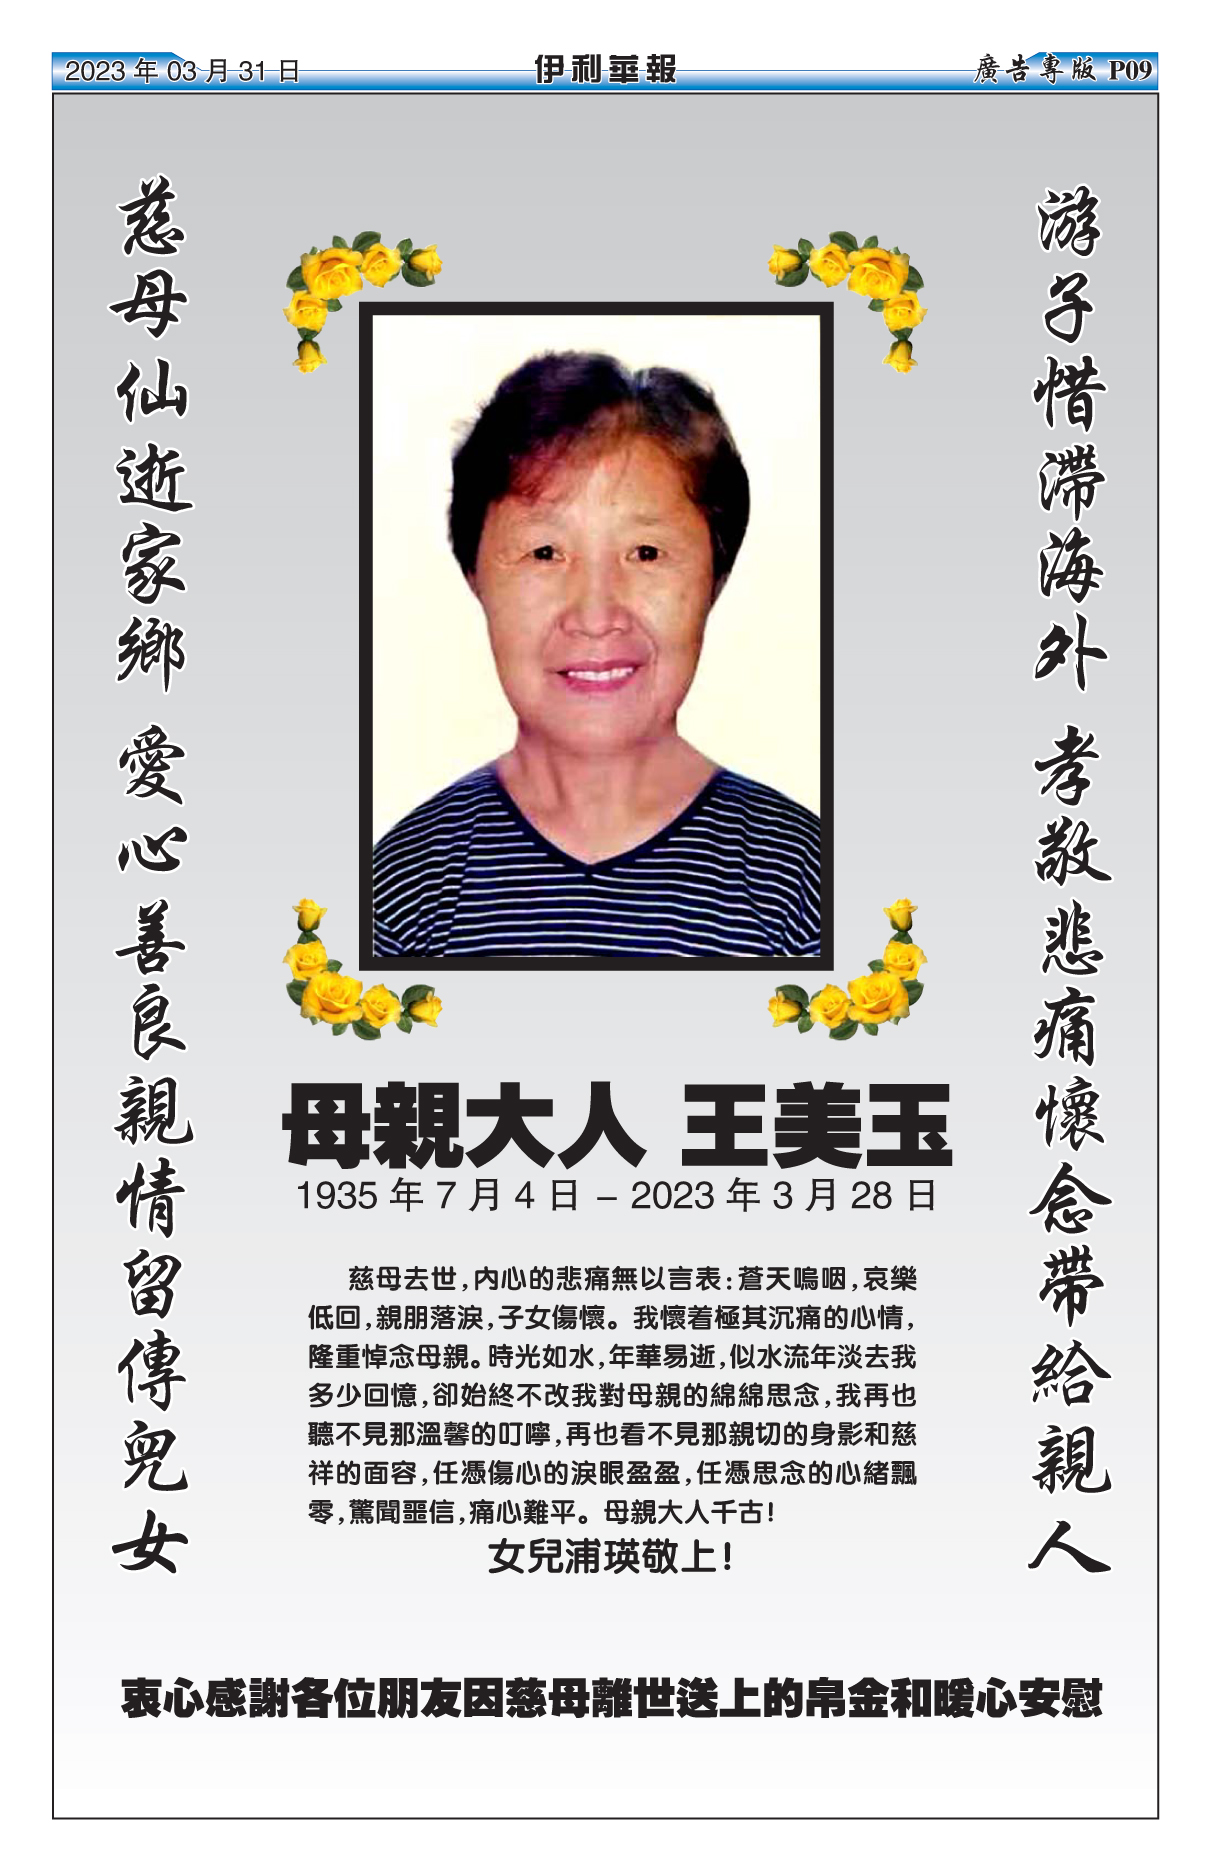 2023 年 03 月 31 日
伊利華報
廣告專版 P09
游子惜滯海外 孝敬悲痛懷念帶給親人
慈母仙逝家鄉 愛心善良親情留傳兒女
母親大人 王美玉
1935 年 7 月 4 日 – 2023 年 3 月 28 日
慈母去世,內心的悲痛無以言表:蒼天嗚咽,哀樂
低回,親朋落淚,子女傷懷。我懷着極其沉痛的心情,
隆重悼念母親。時光如水,年華易逝,似水流年淡去我
多少回憶,卻始終不改我對母親的綿綿思念,我再也
聽不見那溫馨的叮嚀,再也看不見那親切的身影和慈
祥的面容,任憑傷心的淚眼盈盈,任憑思念的心緒飄
零,驚聞噩信,痛心難平。母親大人千古!
女兒浦瑛敬上!
衷心感謝各位朋友因慈母離世送上的帛金和暖心安慰